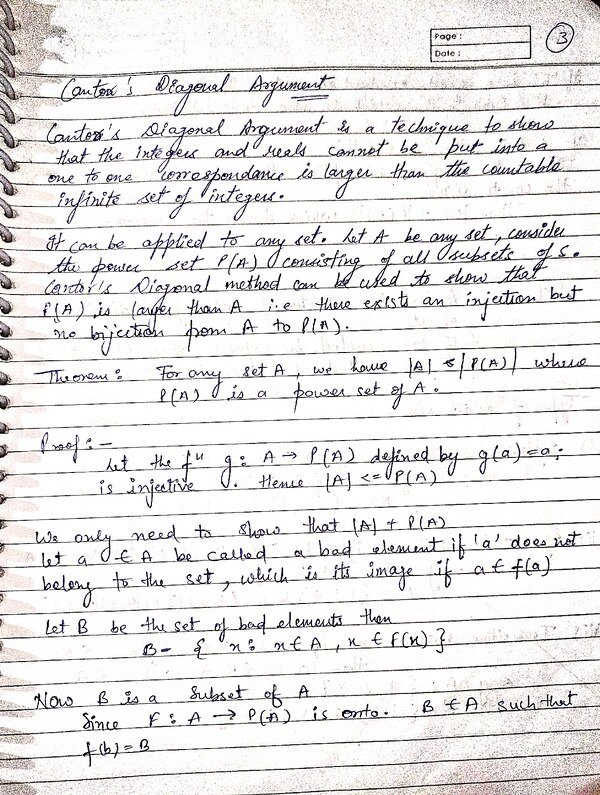 Page :
Date :
3
Cantor's Diagonal Argument
Cantor's Diagonal Argument is a technique to show
that the integers and reals cannot be put into a
one to one correspondance is larger than the countable
infinite set of integers.
It can be applied to any set. Let A be any set, consider
the power set P(A) consisting of all subsets of S.
Cantor's Diagonal method can be used to show that
P(A) is larger than A i.e there exists an injection but
no bijection from A to P(A).
Theorem : For any set A, we have |A| < |P(A)| where
P(A) is a power set of A.
Proof : -
Let the fⁿ g : A → P(A) defined by g(a) = a;
is injective . Hence |A| <= P(A)
We only need to show that |A| ≠ P(A)
Let a ∈ A be called a bad element if 'a' does not
belong to the set, which is its image if a ∈ f(a)
Let B be the set of bad elements then
B = { x : x ∈ A , x ∈ f(x) }
Now B is a Subset of A
Since F : A → P(A) is onto. B ∈ A such that
f(b) = B